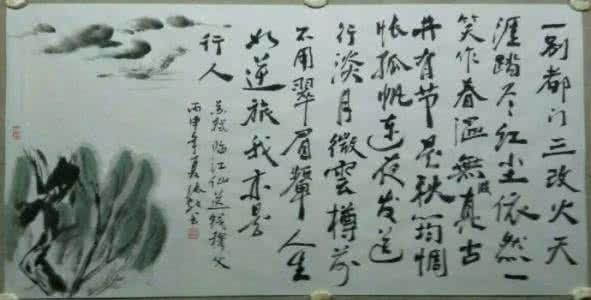 一别都门三改火天
涯踏尽红尘依然一
笑作春温無波真古
井有节是秋筠惆
怅孤帆连夜发送
行淡月微雲樽前
不用翠眉颦人生
如逆旅我亦是
行人
苏轼临江仙送钱穆父
丙申年夏